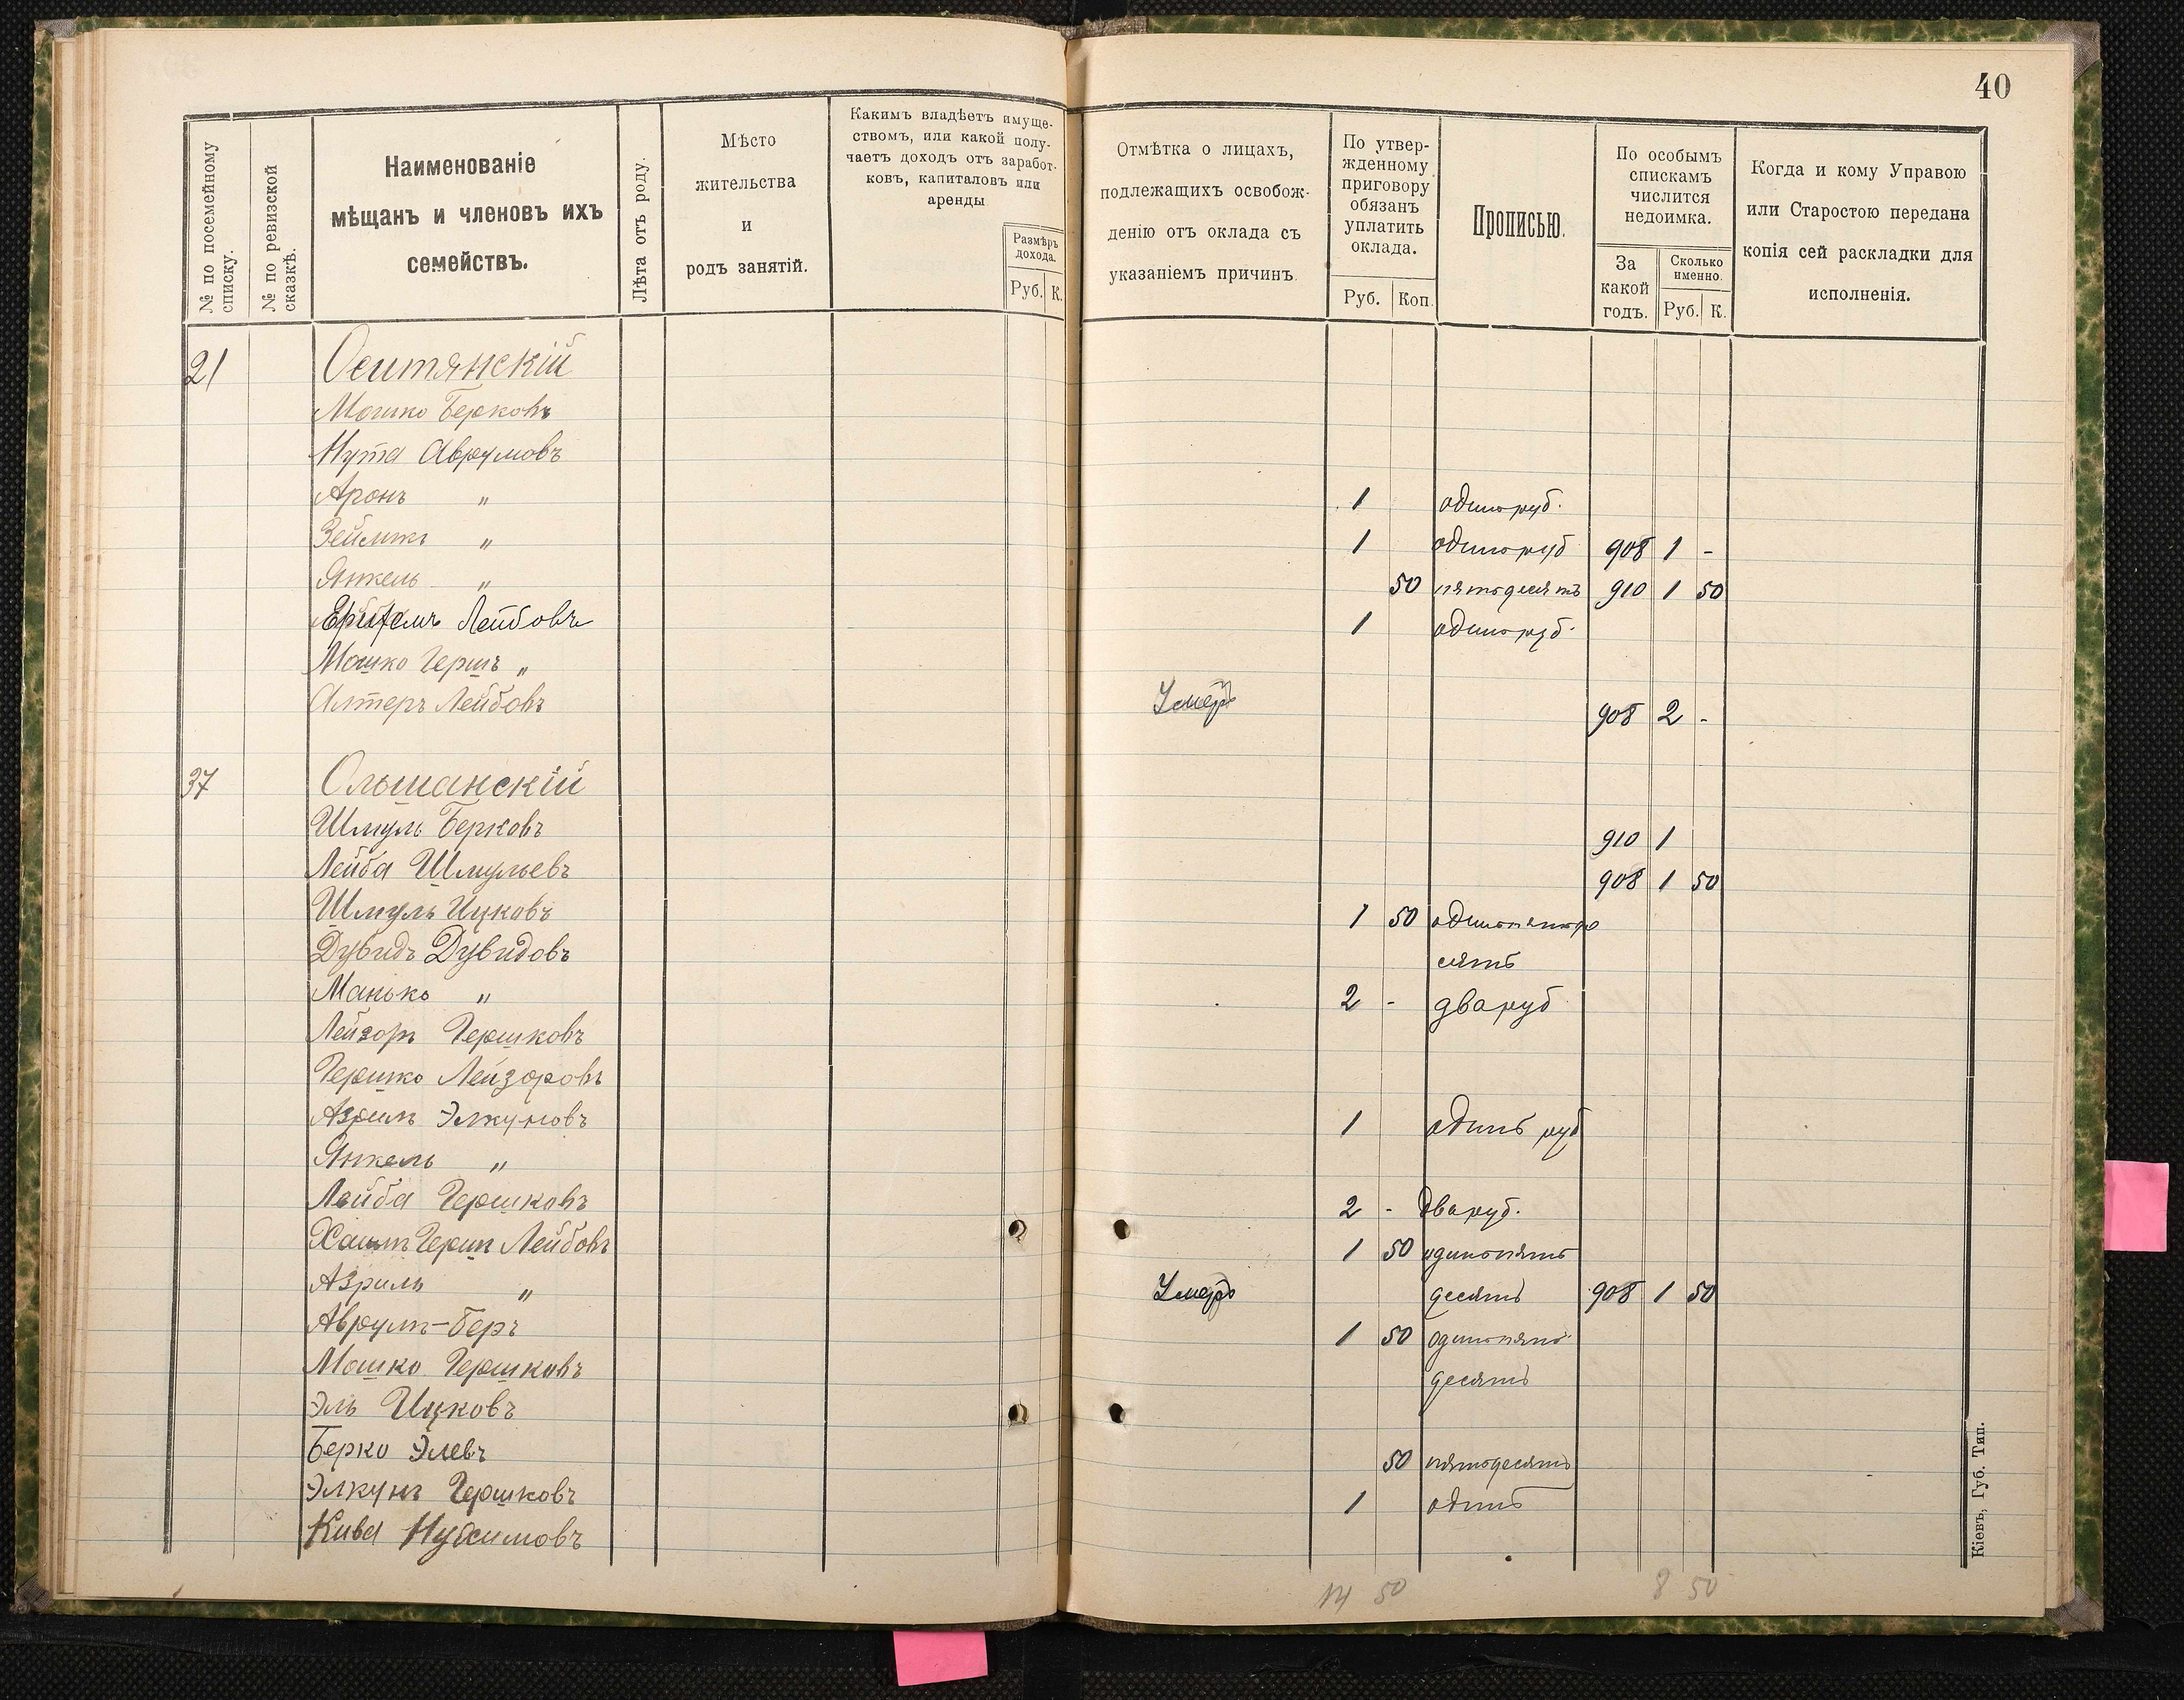 40
№ по посемейному списку.
№ по ревизской сказкѣ.
Наименованіе
мѣщанъ и членовъ ихъ
семействъ.
Лѣта отъ роду.
Мѣсто
жительства
и
родъ занятій.
Какимъ владѣетъ имуще-
ствомъ, или какой полу-
чаетъ доходъ отъ заработ-
ковъ, капиталовъ или
аренды
Размѣръ
дохода.
Руб. К.
Отмѣтка о лицахъ,
подлежащихъ освобож-
денію отъ оклада съ
указаніемъ причинъ.
По утвер-
жденному
приговору
обязанъ
уплатить
оклада.
Руб. Коп.
Прописью.
По особымъ
спискамъ
числится
недоимка.
За
какой
годъ.
Сколько
именно.
Руб. К.
Когда и кому Управою
или Старостою передана
копія сей раскладки для
исполненія.
21 Оситянскій
Мошко Берковъ
Нута Аврумовъ
Аронъ " 1 одинъ руб.
Зейликъ " 1 одинъ руб 908 1 -
Янкель " 50 пятьдесятъ 910 1 50
Лейбовъ 1 одинъ руб.
Мошко Гершъ "
Алтеръ Лейбовъ Умеръ 908 2 -
37 Ольшанскій
Шмуль Берковъ 910 1
Лейба Шмульевъ 908 1 50
Шмуль Ицковъ 1 50 одинъ пятьде
Дувидъ Дувидовъ сятъ
Манько " 2 - два руб
Лейзоръ Гершковъ
Гершко Лейзоровъ
Азриль Элкуновъ 1 одинъ руб
Янкель "
Лейба Гершковъ 2 - два руб.
Хаимъ Гершъ Лейбовъ 1 50 одинъ пять
Азриль " Умеръ десятъ 908 1 50
Аврумъ-Беръ 1 50 одинъ пять
Мошко Гершковъ десятъ
Эль Ицковъ
Берко Элевъ 50 пятьдесятъ
Элкунъ Гершковъ 1 одинъ
Кива Нухимовъ
14 50 8 50
Кіевъ, Губ. Тип.